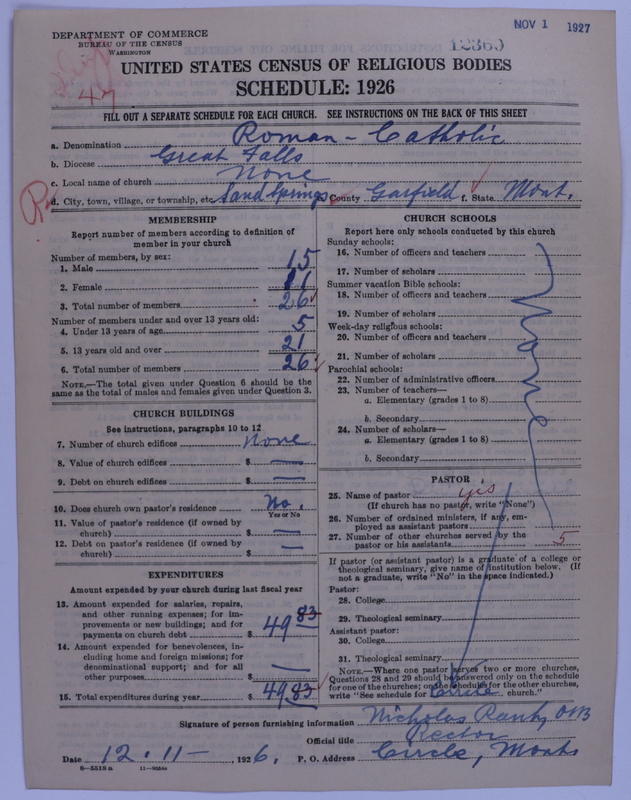 DEPARTMENT OF COMMERCE
BUREAU OF THE CENSUS
WASHINGTON
NOV 1 1927
12369
47
UNITED STATES CENSUS OF RELIGIOUS BODIES
SCHEDULE: 1926
FILL OUT A SEPARATE SCHEDULE FOR EACH CHURCH. SEE INSTRUCTIONS ON THE BACK OF THIS SHEET
a. Denomination Roman-Catholic
b. Diocese Great Falls
c. Local name of church None
d. City, town, village, or township, etc. Sand Springs County Garfield f. State Mont.
MEMBERSHIP
Report number of members according to definition of member in your church
Number of members, by sex:
1. Male 15
2. Female 11
3. Total number of members 26
Number of members under and over 13 years old:
4. Under 13 years of age 5
5. 13 years old and over 21
6. Total number of members 26
NOTE.—The total given under Question 6 should be the same as the total of males and females given under Question 3.
CHURCH BUILDINGS
See instructions, paragraphs 10 to 12
7. Number of church edifices None
8. Value of church edifices $ —
9. Debt on church edifices $ —
10. Does church own pastor's residence No.
Yes or No
11. Value of pastor's residence (if owned by church) $ —
12. Debt on pastor's residence (if owned by church) $ —
EXPENDITURES
Amount expended by your church during last fiscal year
13. Amount expended for salaries, repairs, and other running expenses; for improvements or new buildings; and for payments on church debt $ 49 83
14. Amount expended for benevolences, including home and foreign missions; for denominational support; and for all other purposes $ —
15. Total expenditures during year $ 49 83
CHURCH SCHOOLS
Report here only schools conducted by this church
Sunday schools:
16. Number of officers and teachers
17. Number of scholars
Summer vacation Bible schools:
18. Number of officers and teachers
19. Number of scholars
Week-day religious schools:
20. Number of officers and teachers
21. Number of scholars
Parochial schools:
22. Number of administrative officers
23. Number of teachers—
a. Elementary (grades 1 to 8)
b. Secondary
24. Number of scholars—
a. Elementary (grades 1 to 8)
b. Secondary
None
PASTOR
25. Name of pastor yes
(If church has no pastor, write "None")
26. Number of ordained ministers, if any, employed as assistant pastors
27. Number of other churches served by the pastor or his assistants 5
If pastor (or assistant pastor) is a graduate of a college or theological seminary, give name of institution below. (If not a graduate, write "No" in the space indicated.)
Pastor:
28. College
29. Theological seminary
Assistant pastor:
30. College
31. Theological seminary
NOTE.—Where one pastor serves two or more churches, Questions 28 and 29 should be answered only on the schedule for one of the churches; on the schedules for the other churches, write "See schedule for Circle church."
Signature of person furnishing information Nicholas OSB
Official title Rector
Date 12. 11— , 1926. P. O. Address Circle, Mont.
8—5518a 11—9554a